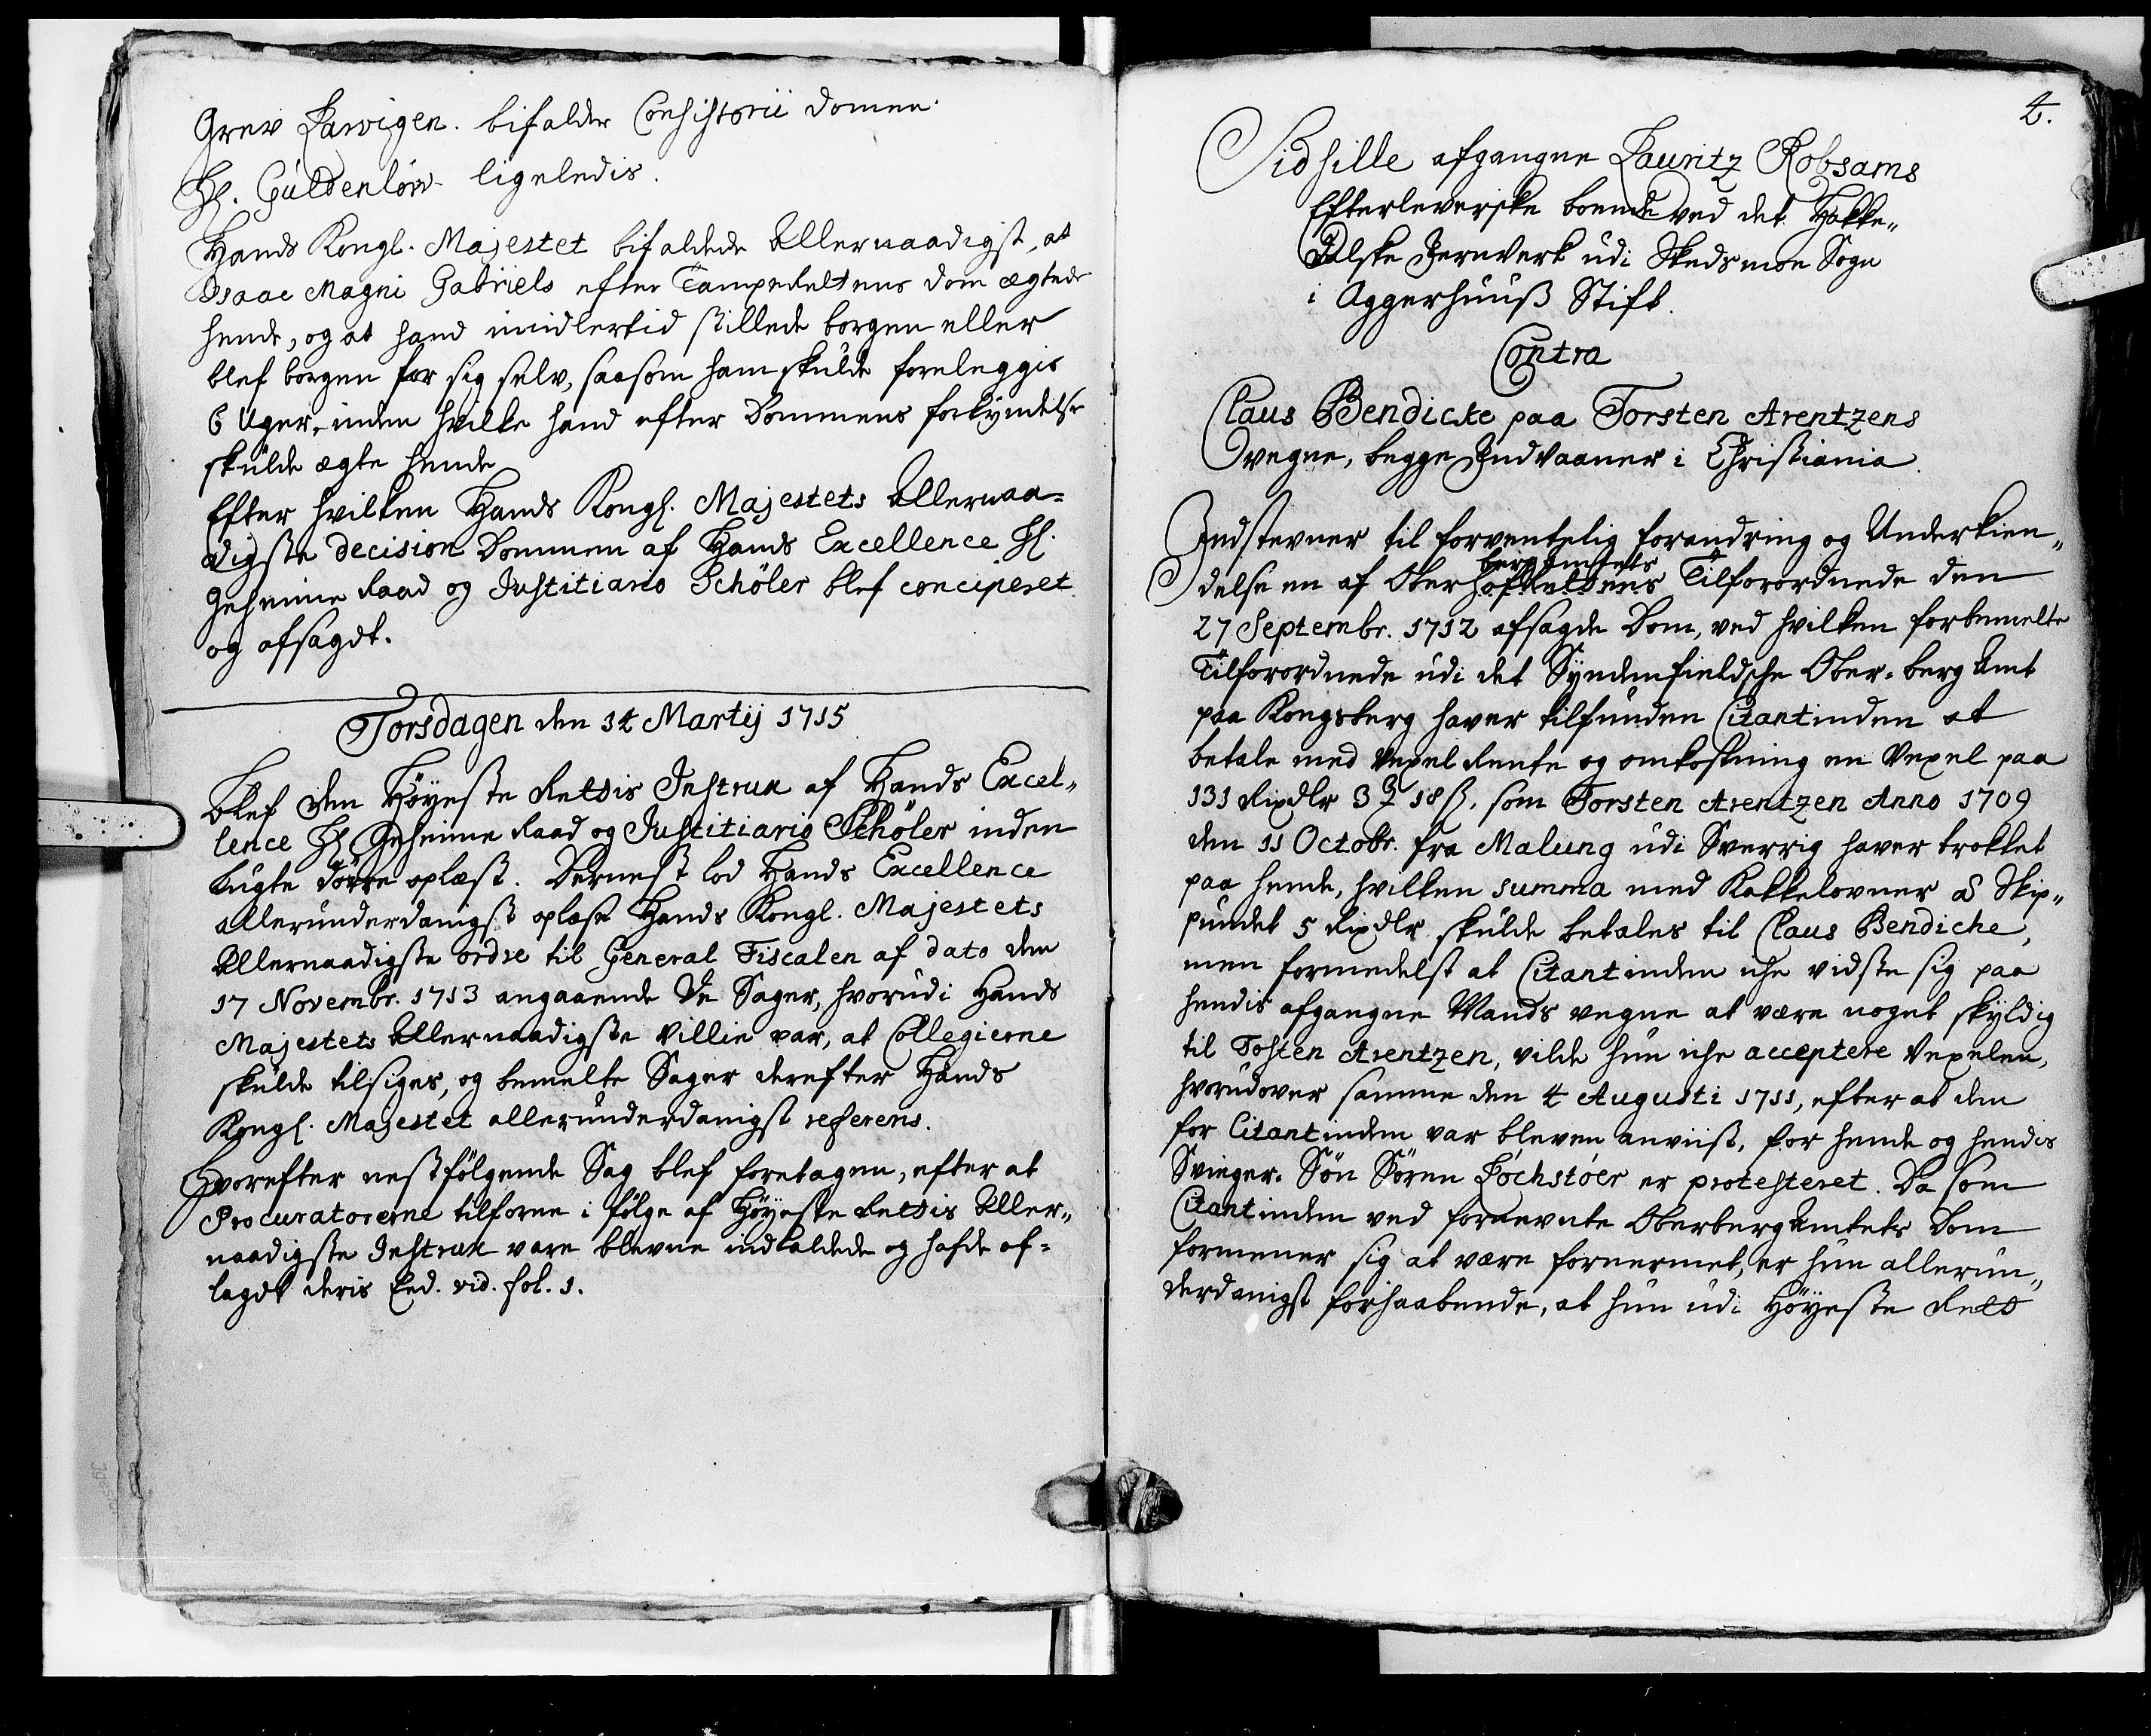 Grev Larvigen. bifalder Consistorii Domen.
H. Güldenlöw ligeledis.
Hands Kongl. Majestet bifaldede Allernaadigst, at
Isaac Magni Gabriels efter Tamperettens Dom ægtede
hende, og at hand imidlertid stillede borgen eller
blef borgen for sig selv, saasom ham skulde foreleggis
6 Uger, inden hvilke hand efter Dommens forkyndelse
skulde ægte hende
Efter hvilken Hands Kongl. Majestets Allernaa-
digste decision Dommen af Hands Excellence H.
Geheime Raad og Justitiario Schöler blef conciperet
og afsagdt.
Torsdagen den 14 Martij 1715
Blef den Höyeste Rettis Instrux af Hands Excel„
lence H. Geheime Raad og Justitiario Schöler inden
lugte dörre oplæst. Dernest lod Hands Excellence
allerunderdanigst oplæse Hands Kongl. Majestets
Allernaadigste ordre til General Fiscalen af dato den
17 Novembr. 1713 angaaende De Sager, hvorudi Hands
Majestets Allernaadigste Villie var, at Collegierne
skulde tilsiges, og bemelte Sager derefter Hands
Kongl. Majestet allerunderdanigst refereris.
Hvorefter nestfölgende Sag blef foretagen, efter at
Procuratorerne tilforne i fölge af Höyeste Rettis Aller„
naadigste Instrux vare blevne indkaldede og hafde af-
lagdt deris Eed. vid. fol. 1.
4.
Sidsille afgangne Lauritz Robsams
Efterleverske boende ved det Hakke„
Dalske Jernverk udi Skedsmoe Sogn
i Aggerhuuß Stift.
Contra
Claus Bendicke paa Torsten Arentzens
vegne, begge Indvaaner i Christiania.
Indstevner til forventelig forandring og Underkien„
bergAmtets
delse en af Oberhofrettens Tilforordnede den
27 Septembr. 1712 afsagde Dom, ved hvilken forbemelte
Tilforordnede udi det Syndenfieldsche Ober-berg Amt
paa Kongsberg haver tilfunden Citantinden at
betale med Vexel Rente og omkostning en Vexel paa
131 Rixdlr 3 ℥ 18 ß. som Torsten Arentzen Anno 1709
den 11 Octobr. fra Malung udi Sverrig haver trokket
paa hende, hvilken summa med Kakkelovner â Skip„
pundet 5 Rixdlr skulde betales til Claus Bendiche,
men formedelst at Citantinden iche vidste sig paa
hendis afgangne Mands vegne at være noget skyldig
til Tosten Arentzen, vilde hun iche acceptere Vexelen,
hvorudover samme den 4 Augusti 1711, efter at den
for Citantinden var bleven anviist, for hende og hendis
Svieger-Sön Sören Löchstöer er protesteret. Da som
Citantinden ved fornevnte OberbergAmtets Dom
formener sig at være fornermet, er hun allerun„
derdanigst forhaabende, at hun udi Höyeste Rett